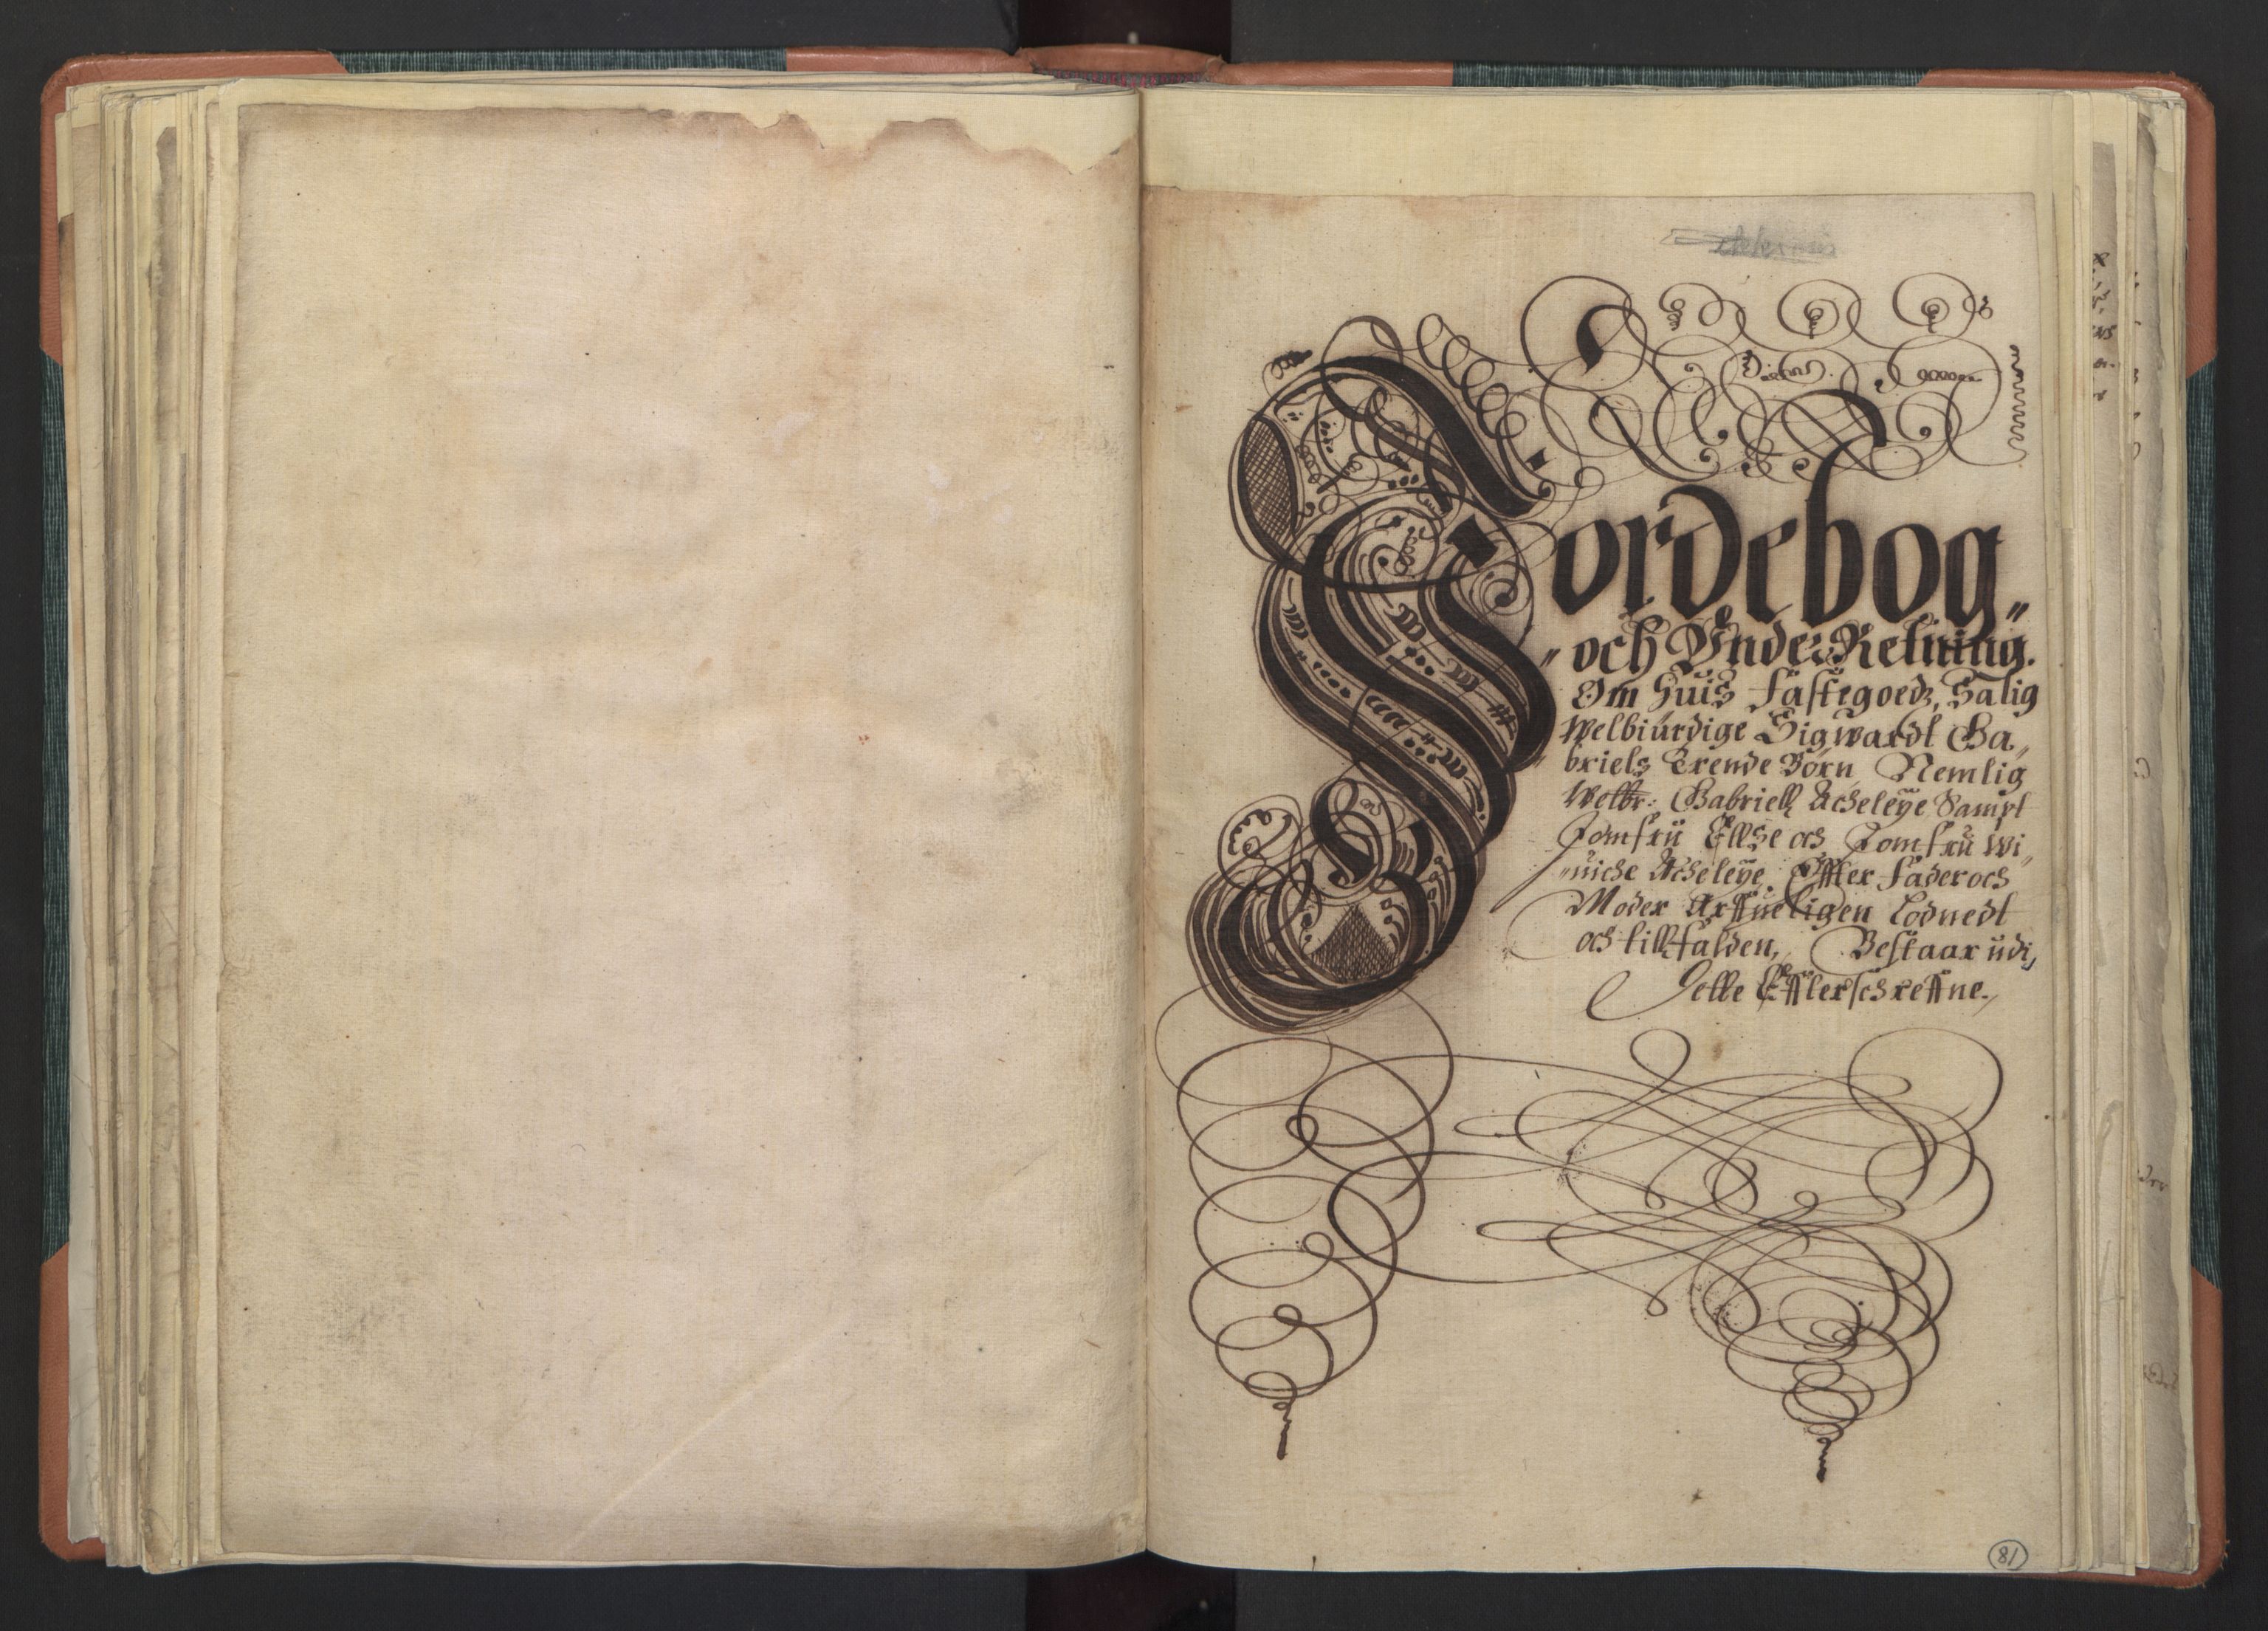 Jordebog„
„och Under Retning.
Om Huis Fastegoeds, Salig
Welbiürdige Sigwardt Ga„
briels Trende Börn Nemlig
Welbr: Gabriell Acheleÿe Sampt
Jomfrü Ellse och Jomfrü Wi„
„niche Acheleÿe, Effter Fader och
Moder Arffüeligen Lodnedt
och tillfalden, Bestaar üdi,
Dette Effterschreffne.
81